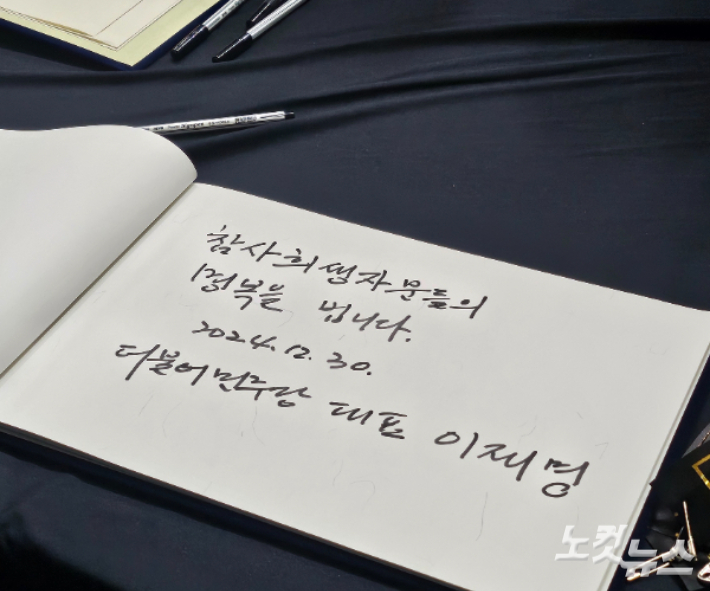 참사희생자분들의
명복을 빕니다.
2024. 12. 30.
더불어민주당 대표 이재명
노컷뉴스